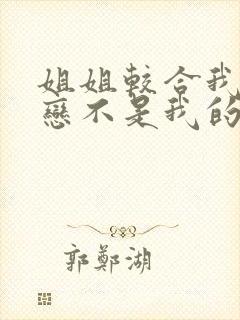 姐姐較合我
戀不是我的
郭鄭湖